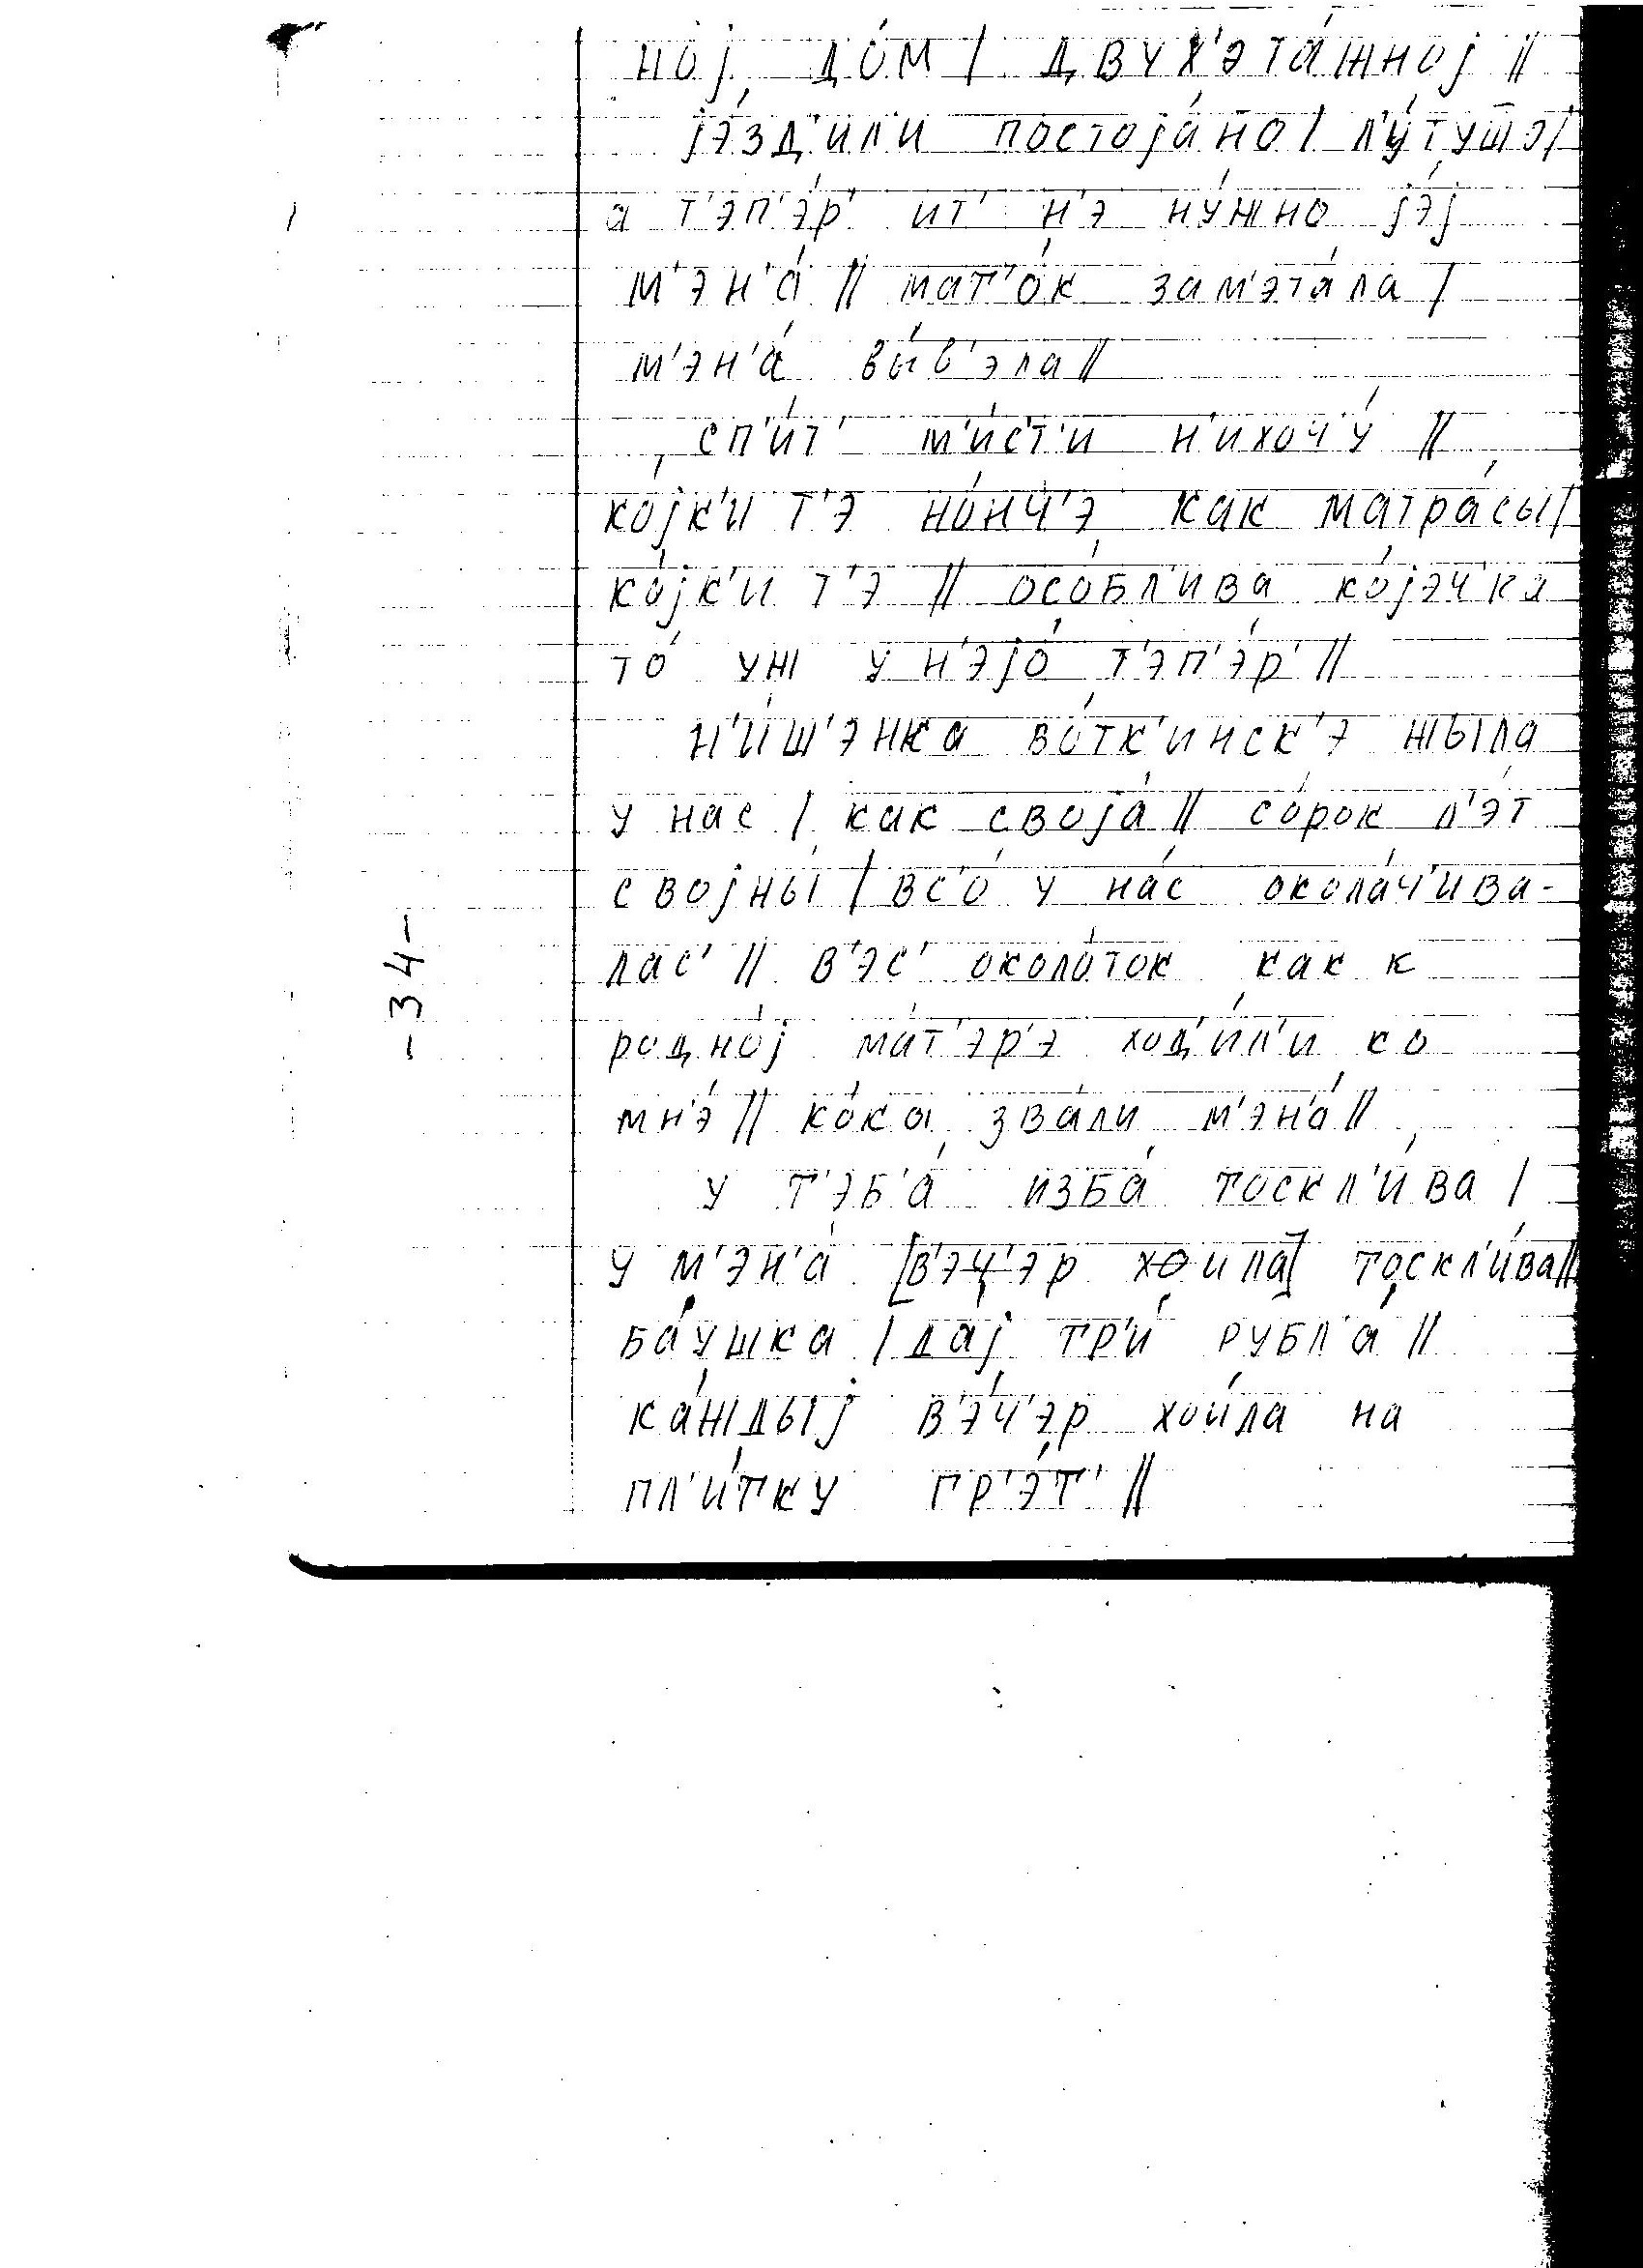 ноj до́м / двух'эта́жноj //
jэ́зд'ил'и постоjа́но / л'у́тушэ /
а т'эп'э́р' ит' н'э ну́жно jэ́j
м'эн'а́ // мат'о́к зам'эта́ла /
м'эн'а́ вы́в'эла //
сп'и́т' м'и́ст'и н'ихоч'у́ //
ко́jк'и т'э но́нч'э как матра́сы /
ко́jк'и т'э // осо́бл'ива ко́jэч'ка
то́ уж у н'эjо́ т'эп'э́р' //
н'и́ш'энка во́тк'инск'э жыла
у нас / как своjа́ // со́рок л'э́т
своjны́ / вс'о́ у на́с окола́ч'ива-
лас' // в'эс' около́ток как к
родно́j ма́т'эр'э ход'и́л'и ко
мн'э́ // ко́ка зва́ли м'эн'а́ //
у т'эб'а́ изба́ тоскл'и́ва /
у м'эн'а́ [в'эч'эр хоила] тоскл'и́ва //
ба́ушка / даj тр'и́ рубл'а́ //
ка́ждыj в'э́ч'эр хои́ла на
пл'и́тку гр'э́т' //
-34-